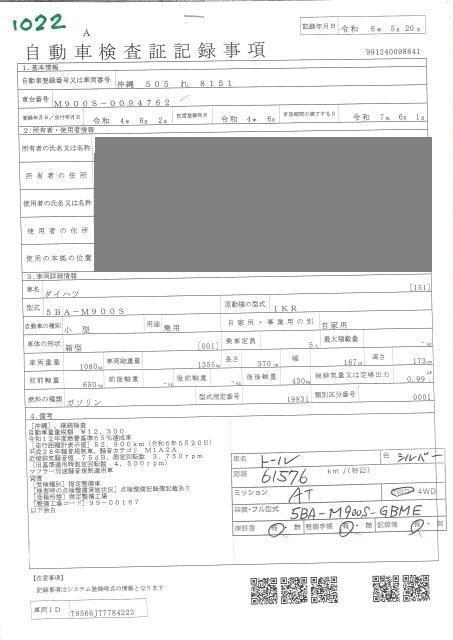 1022
A
記録年月日 令和 6年 5月20日
自動車検査証記録事項
991240098841
1.基本情報
自動車登録番号又は車両番号 沖縄 505 れ 8151
車台番号 M900S-0094762
登録年月日/交付年月日 令和 4年 6月 2日 初度登録年月 令和 4年 6月 有効期間の満了する日 令和 7年 6月 1日
2.所有者・使用者情報
所有者の氏名又は名称
所有者の住所
使用者の氏名又は名称
使用者の住所
使用の本拠の位置
3.車両詳細情報
車名 ダイハツ [151]
型式 5BA-M900S 原動機の型式 1KR
自動車の種別 小型 用途 乗用 自家用・事業用の別 自家用
車体の形状 箱型 [001] 乗車定員 5人 最大積載量 -kg
車両重量 1080kg 車両総重量 1355kg 長さ 370cm 幅 167cm 高さ 173cm
前前軸重 650kg 前後軸重 -kg 後前軸重 -kg 後後軸重 430kg 総排気量又は定格出力 0.99L
燃料の種類 ガソリン 型式指定番号 19831 類別区分番号 0001
4.備考
[沖縄],継続検査
自動車重量税額 ¥12,300
令和12年度燃費基準65%達成車
[走行距離計表示値] 52,900km(令和6年5月20日)
平成28年騒音規制車,騒音カテゴリ M1A2A
近接排気騒音値 75dB,測定回転数 3,750rpm
(旧基準適用時測定回転数 4,500rpm)
マフラー加速騒音規制適用車
[受検種別] 指定整備車
[検査時の点検整備実施状況] 点検整備記録簿記載あり
[受検形態] 指定整備工場
[整備工場コード] 99-00167
以下余白
車名 トール 色 シルバー
距離 61576 km/(特記)
ミッション AT 2WD 4WD
認類・フル型式 5BA-M900S-GBME
保証書 有・無 整備手帳 有・無 記録簿 有・無
【注意事項】
記録事項はシステム登録時点の情報となります
車両ID T9566JT7784223